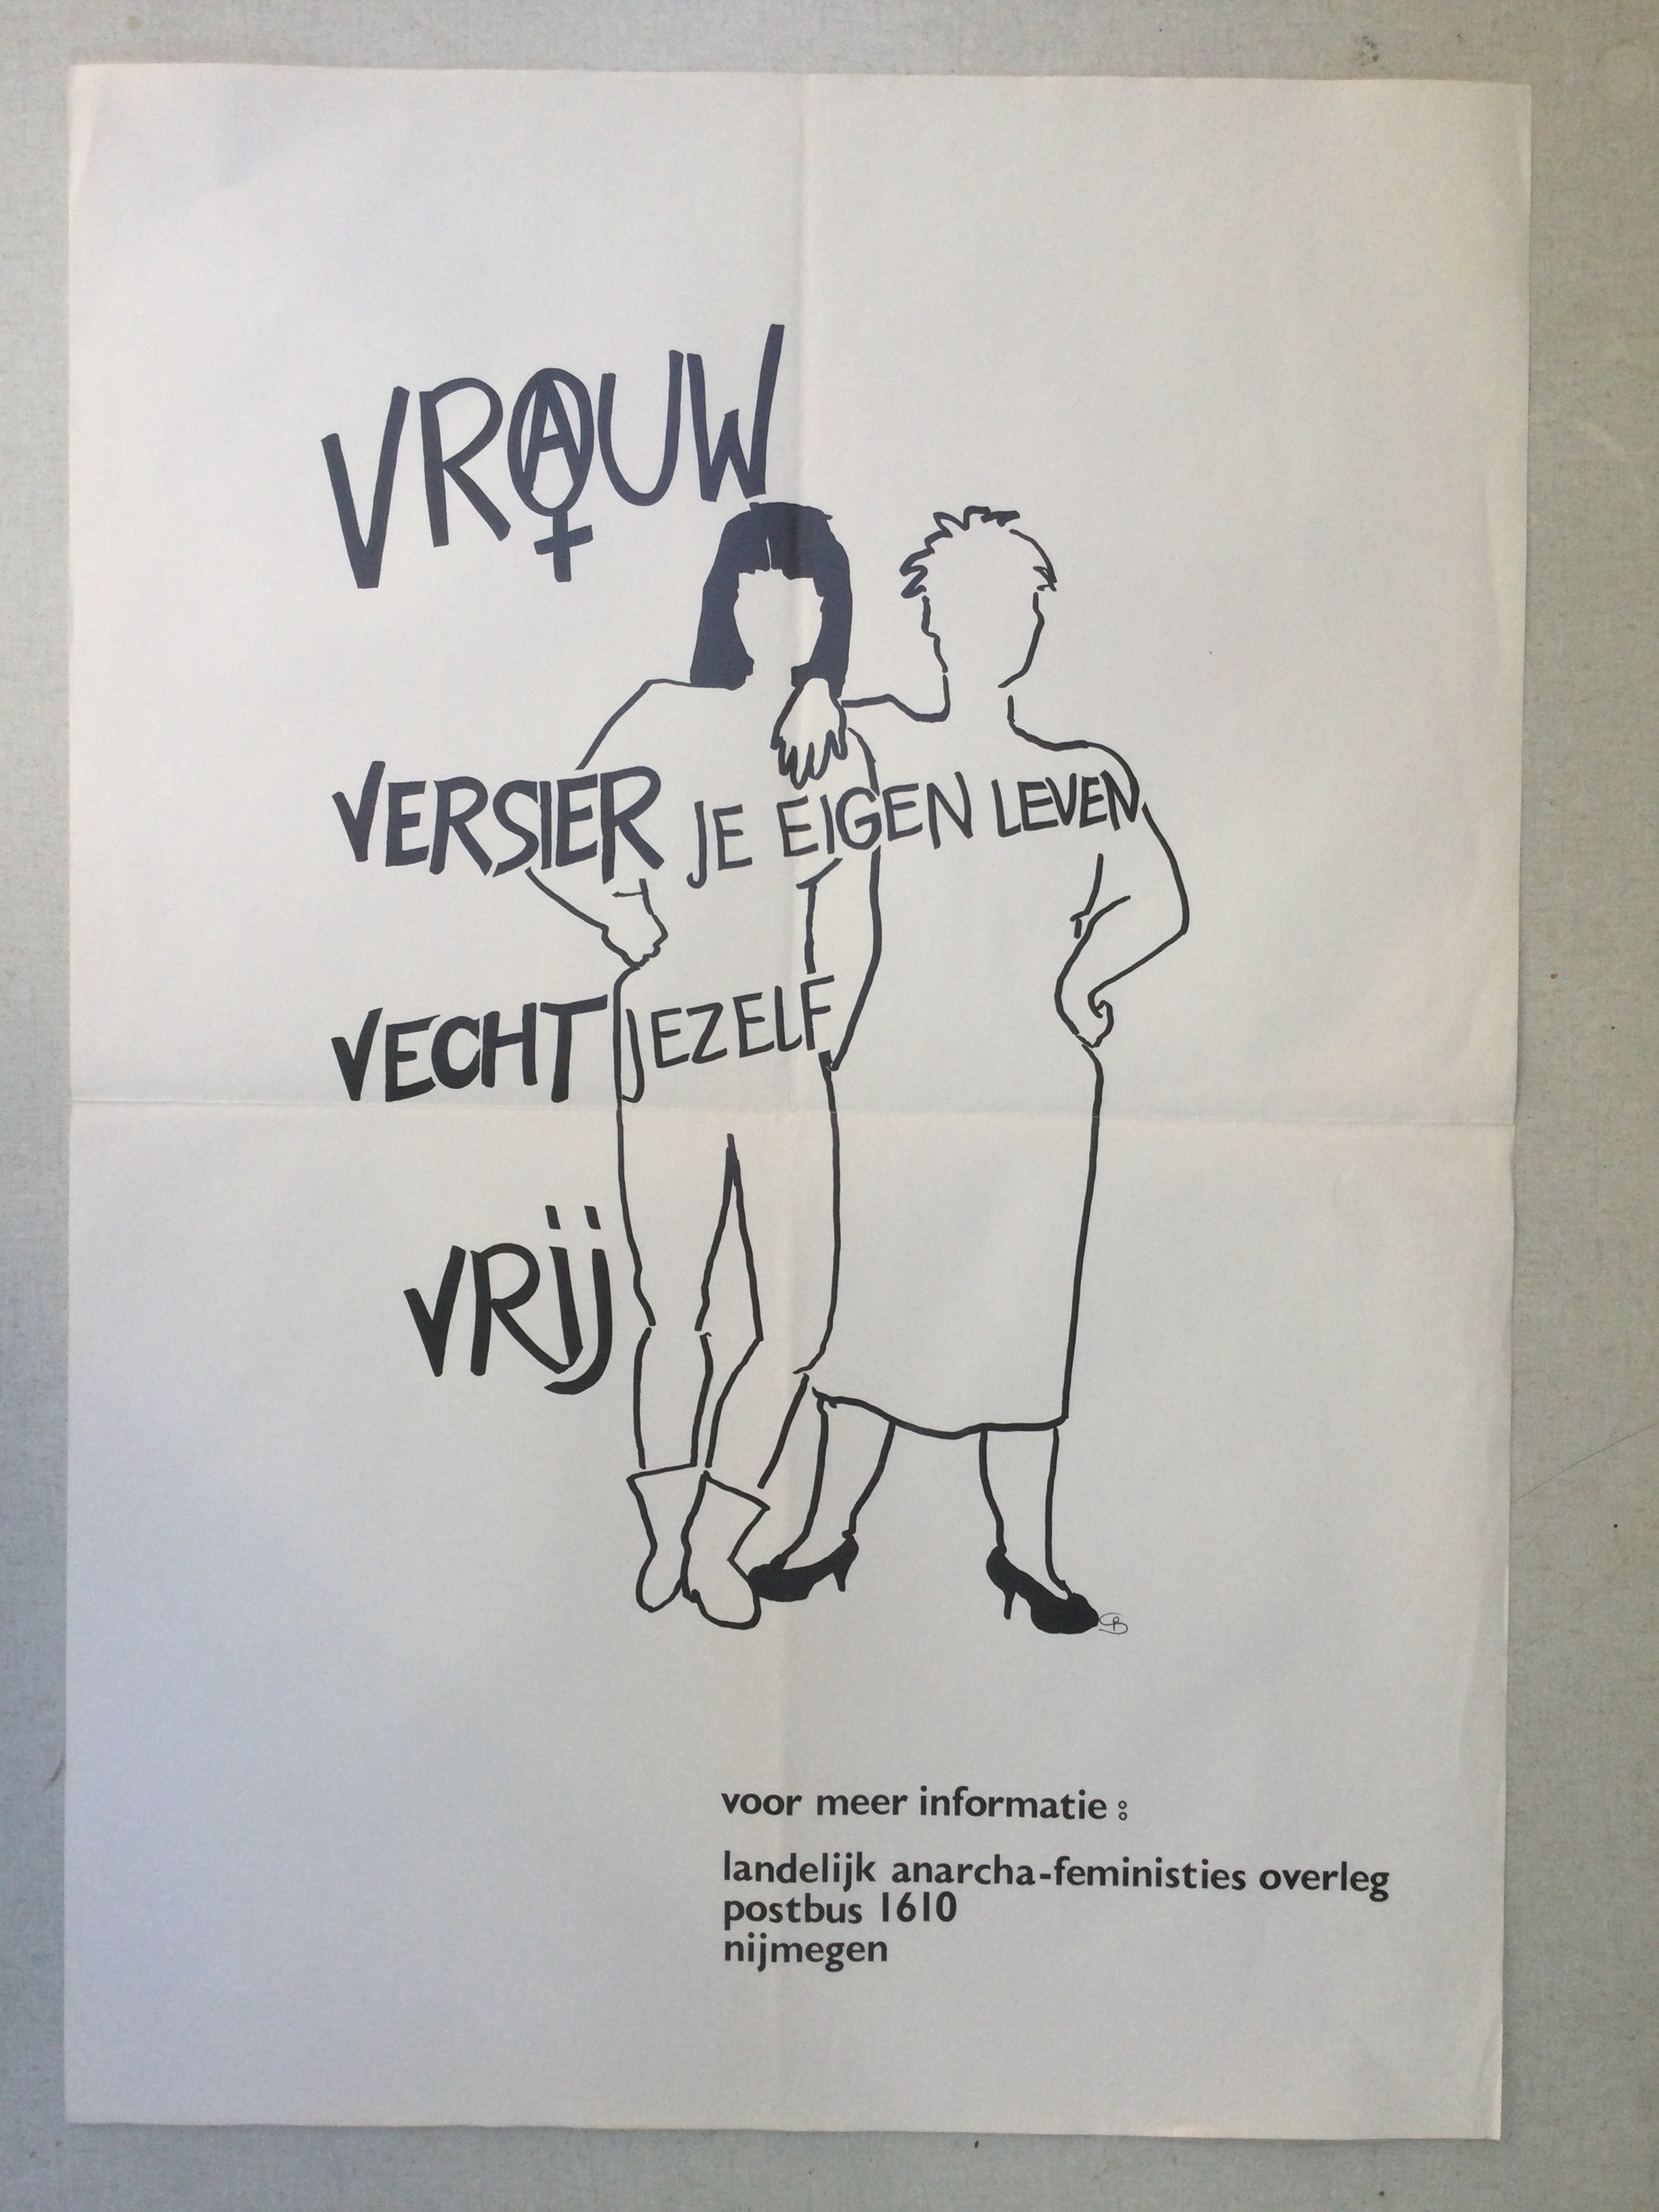 VROUW
VERSIER JE EIGEN LEVEN
VECHT JEZELF
VRIJ
voor meer informatie :
landelijk anarcha-feministies overleg
postbus 1610
nijmegen